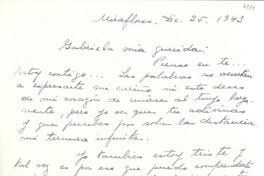 Miraflores. Dic. 25. 1943
Gabriela mía querida:
Pienso en ti...
Estoy contigo... Las palabras no acuden
a expresarte mi cariño ni este deseo
de mi corazón de unirse al tuyo larga
mente, pero yo sé que tú adivinas
y que percibes por sobre la distancia
mi ternura infinita.
Yo también estoy triste y
tal vez es por eso que puedo comprenderte